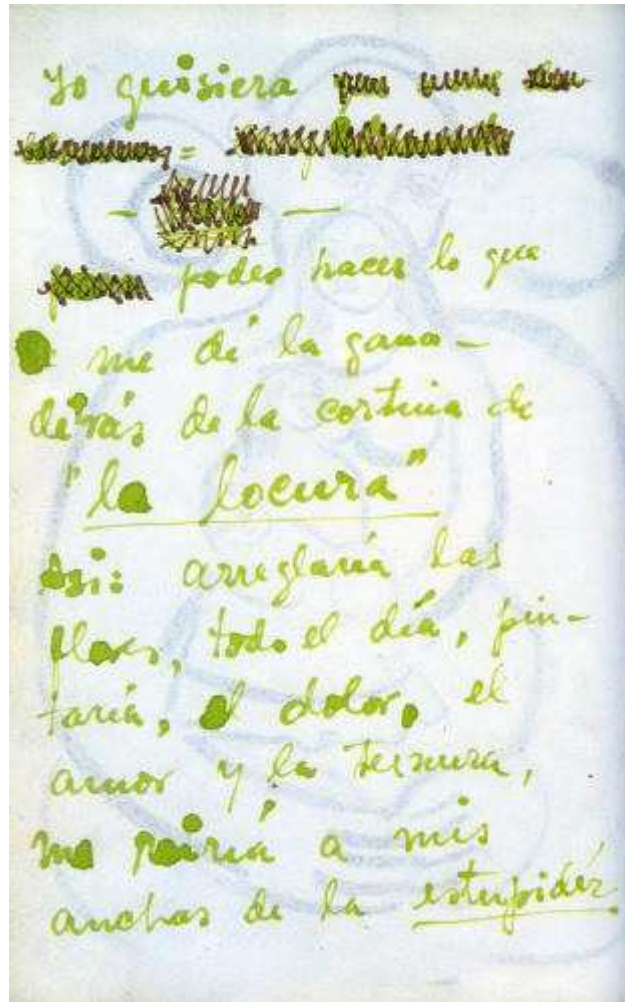 Yo quisiera
poder hacer lo que
me dé la gana –
detrás de la cortina de
"la locura"
Asi: arreglaría las
flores, todo el día, pin-
taría, el dolor, el
amor y la ternura,
me reiría a mis
anchas de la estupidéz